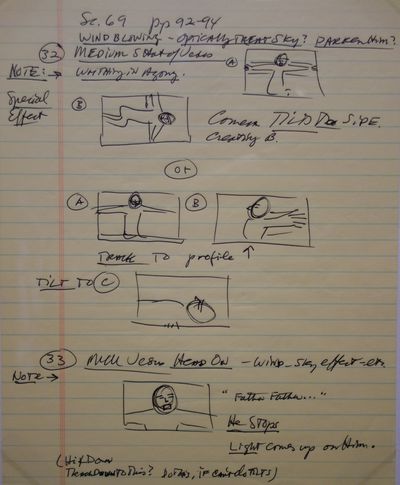 Sc. 69 pp 92-94
WIND BLOWING - OPTICALLY TREAT SKY? DARKEN Him?
32 MEDIUM SHOT of Jesus A
NOTE: → WRITHING in Agony.
Special B
Effect Camera TILTS To SIDE.
Creating B.
Or
A B
TRACK TO profile ↑
TILT TO C
33 MCU Jesus HEAD ON - WIND - SKY effect - etc.
NOTE →
"Father Father..."
He Stops
Light comes up on Him.
TO THIS?